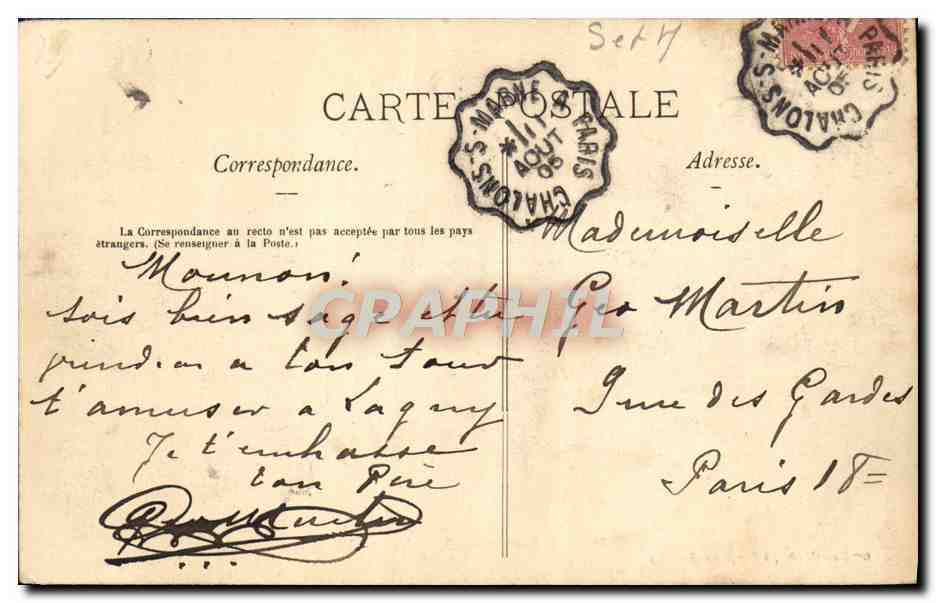 Set M
CARTE POSTALE
Correspondance.
La Correspondance au recto n'est pas acceptée par tous les pays
étrangers. (Se renseigner à la Poste.)
Mounon!
sois bien sage et tu
viendras a ton tour
t'amuser a Lagny
Je t'embrasse
ton Père
Geo Martin
CHALONS-S-MARNE A PARIS
AOUT
05
CHALONS-S-MARNE A PARIS
AOUT
05
Adresse.
Mademoiselle
Geo Martin
9 rue des Gardes
Paris 18=
CPAPHIL